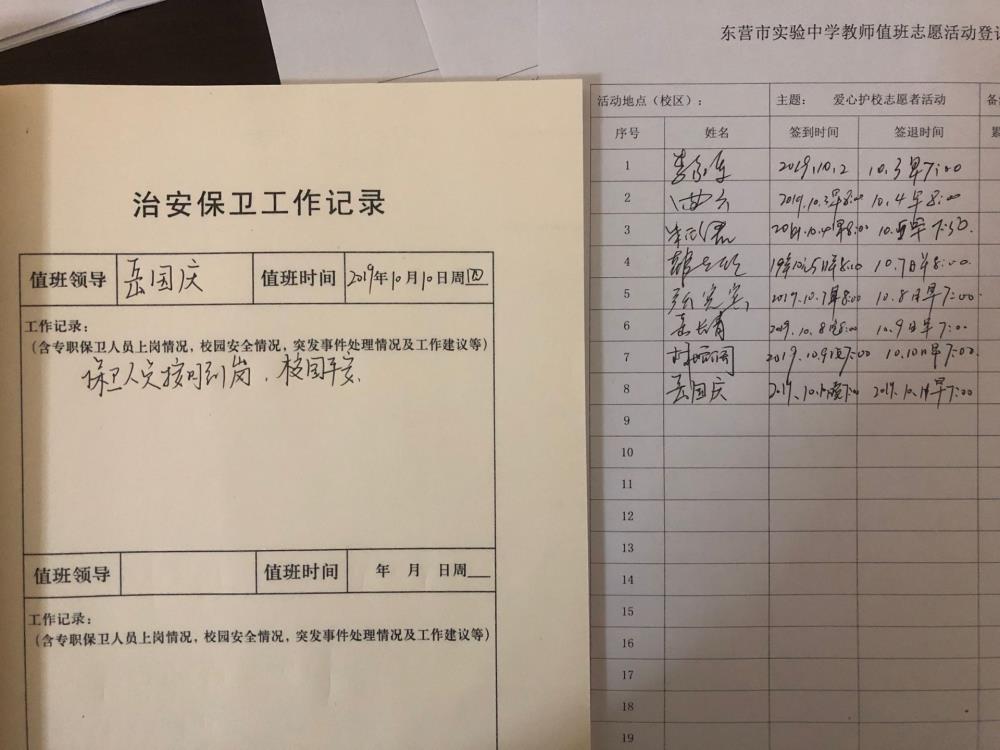 治安保卫工作记录
值班领导 岳国庆 值班时间 2019年10月10日周四
工作记录：
（含专职保卫人员上岗情况，校园安全情况，突发事件处理情况及工作建议等）
保卫人员按时到岗，校园平安。
值班领导 值班时间 年 月 日周
工作记录：
（含专职保卫人员上岗情况，校园安全情况，突发事件处理情况及工作建议等）
东营市实验中学教师值班志愿活动登
活动地点（校区）： 主题： 爱心护校志愿者活动
序号 姓名 签到时间 签退时间
1 2019.10.2 10.3早7:00
2 2019.10.3早8:00 10.4早8:00
3 2019.10.4早8:00 10.5早7:50.
4 10.7日早8:00.
5 2019.10.7早8:00 10.8日早7:00.
6 2019.10.8 8:00 10.9日早7:00
7 2019.10.9晚7:00 10.10日早7:00.
8 岳国庆 2019.10.10晚7:00 2019.10.11早7:00
9
10
11
12
13
14
15
16
17
18
19